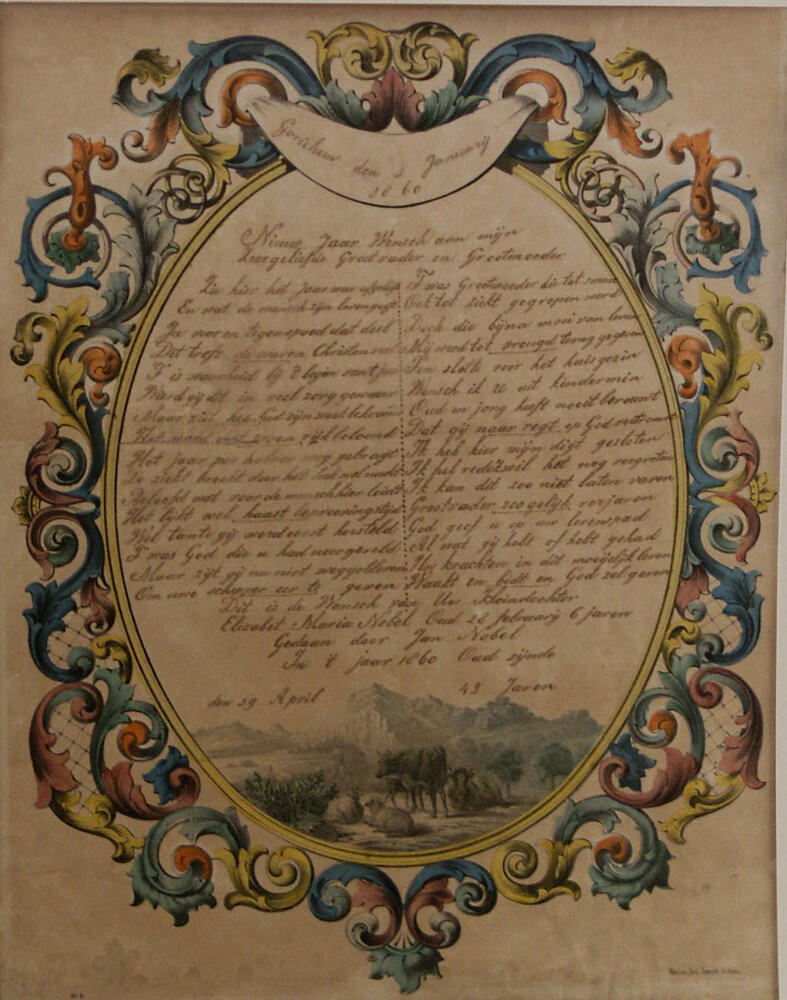 Gorichem den 1 Januarij
1860
Nieuw Jaar Wensch aan mijn
Zeergeliefde Grootvader en Grootmoeder
Zie hier het jaar weer
En wat de mensch zijn leven
Ja voor en tegenspoed dat deel
Dit treft de waren Christen
T is waarheid bij 't begin van t jaar
Werd gij dit in veel zorg gewaar
Maar ziet hier God zijn
Het rijk beloond
Het jaar zorg gebragt
Je ziekt bracht door het
Beloofd wat voor de mensch hier
Het lijkt wel haast
Wel tante gij werd eerst hersteld
T was God die u had neergeveld
Maar zijt gij nu niet weggebleven
Om uwe schepper eer te geven
T was Grootmoeder die tot
Ook tot ziekt gegrepen werd
Doch die bijna mooi van leven
Mij werd tot vreugd terug gegeven
Ten slotte voor het huisgezin
Wensch ik U uit kindermin
Oud en jong heeft nooit berouwt
Dat gij naar regt op God vertrouwt
Ik heb hier mijn digt gesloten
Ik het nog vergroten
Ik kan dit zoo niet laten varen
Grootvader zoo gelijk verjaren
God geef u op uw levenspad
Al wat gij hebt of hebt gehad
Uw krachten in dit moeijelijk leven
Waakt en bidt en God zal geven
Dit is de Wensch van Uw Kleindochter
Elizabet Maria Nobel Oud 28 februarij 6 jaren
Gedaan door Jan Nobel
In t jaar 1860 Oud zijnde
den 29 April 43 Jaren